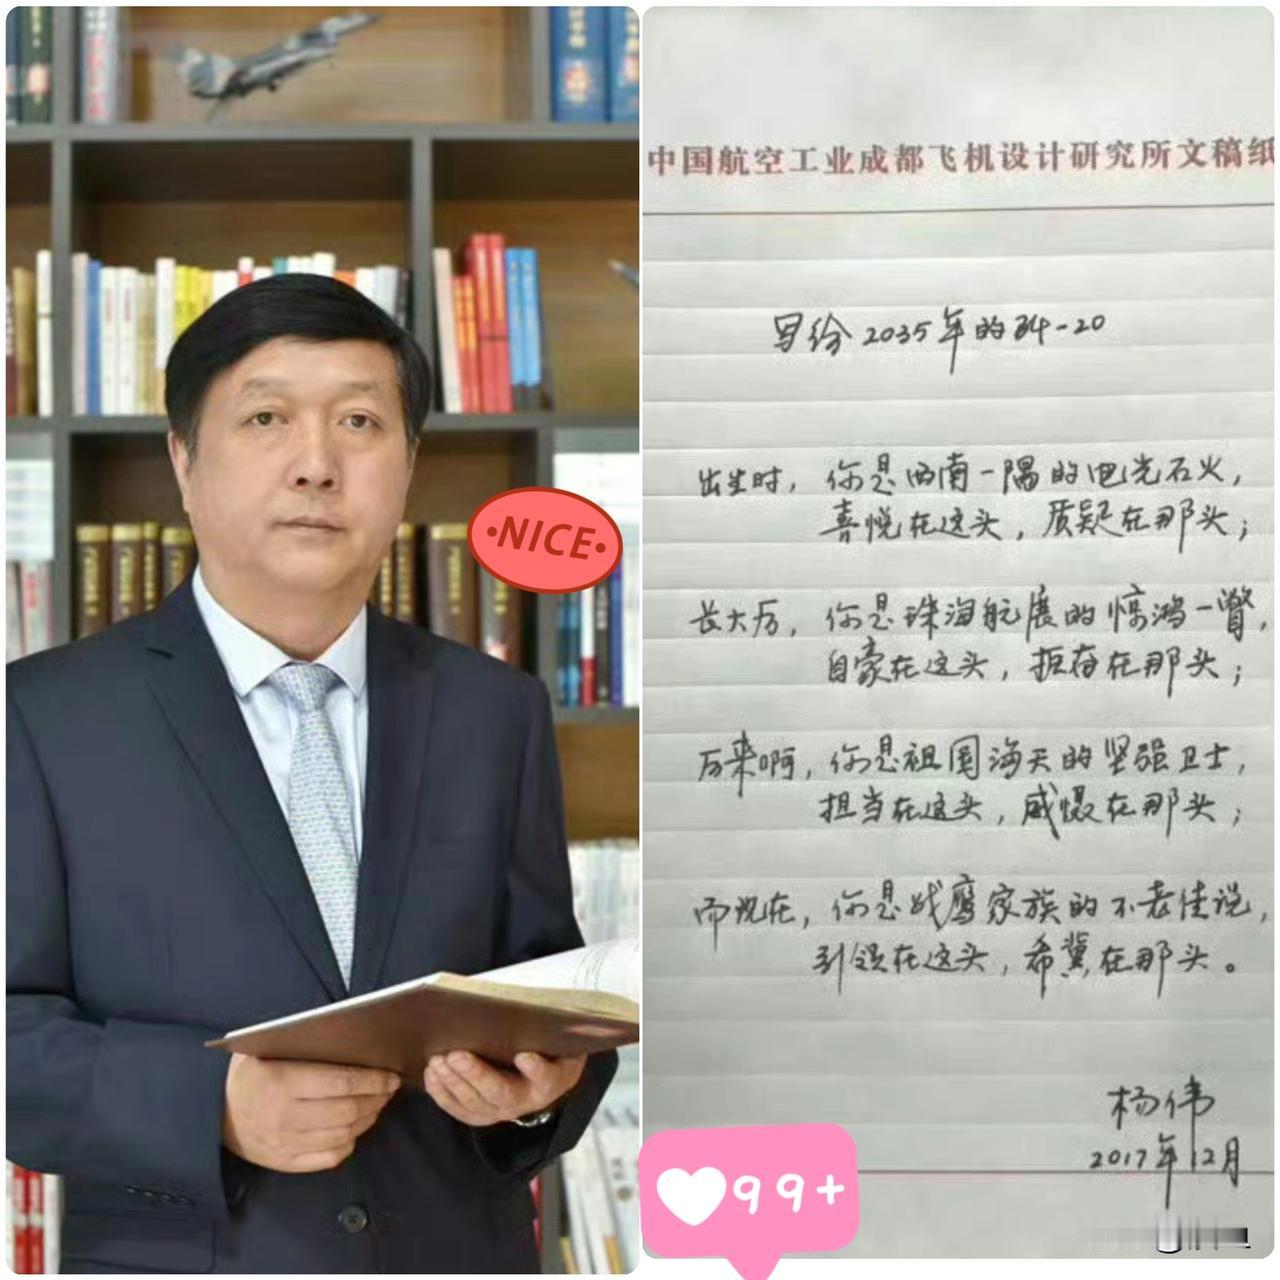 ·NICE·
中国航空工业成都飞机设计研究所文稿纸
写给2035年的歼-20
出生时，你是西南一隅的电光石火，
喜悦在这头，质疑在那头；
长大后，你是珠海航展的惊鸿一瞥，
自豪在这头，振奋在那头；
后来啊，你是祖国海天的坚强卫士，
担当在这头，威慑在那头；
而现在，你是战鹰家族的不老佳说，
引领在这头，希冀在那头。
杨伟
2017年12月
99+